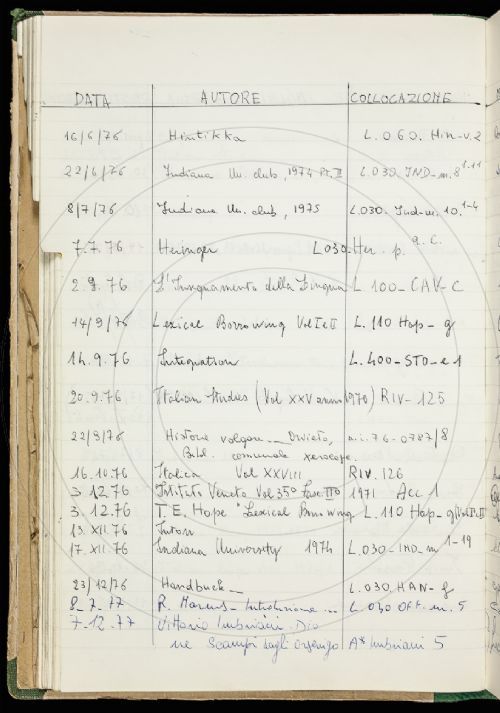 DATA AUTORE COLLOCAZIONE
16/6/76 Hintikka L. 060. Hin-v.2
22/6/76 Indiana Un. club, 1974 Pt. II L. 030. IND-m. 8 1-11
8/7/76 Indiana Un. club, 1975 L. 030. Ind-m. 10. 1-4
7.7.76 Heringer L 030. Her. p. a.c.
2.9.76 L'Insegnamento della Lingua L 100-CAV-C
14/9/76 Lexical Borrowing Vol I e II L. 110 Hop-g
14.9.76 Integration L. 400-STO-e 1
20.9.76 Italian Studies (Vol XXV anno 1970) RIV-125
22/9/76 volgare Orvieto, m.i. 76-0787/8
Bibl. comunale xerocopie.
16.10.76 Italica Vol XXVIII RIV. 126
3.12.76 Istituto Veneto Vol 35° Fasc. IIIo 1971 Acc 1
3.12.76 T.E. Hope "Lexical Borrowing L. 110 Hop-g/Vol I e II
13.XII.76
17.XII.76 Indiana University 1974 L. 030-IND-m 1-19
23/12/76 Handbuch L. 030. HAN-g
8_7_77 R. ... L 030 Off. m. 5
7-12-77 Vittorio Imbriani Dio
ne Scampi dagli Orsenigo A* Imbriani 5